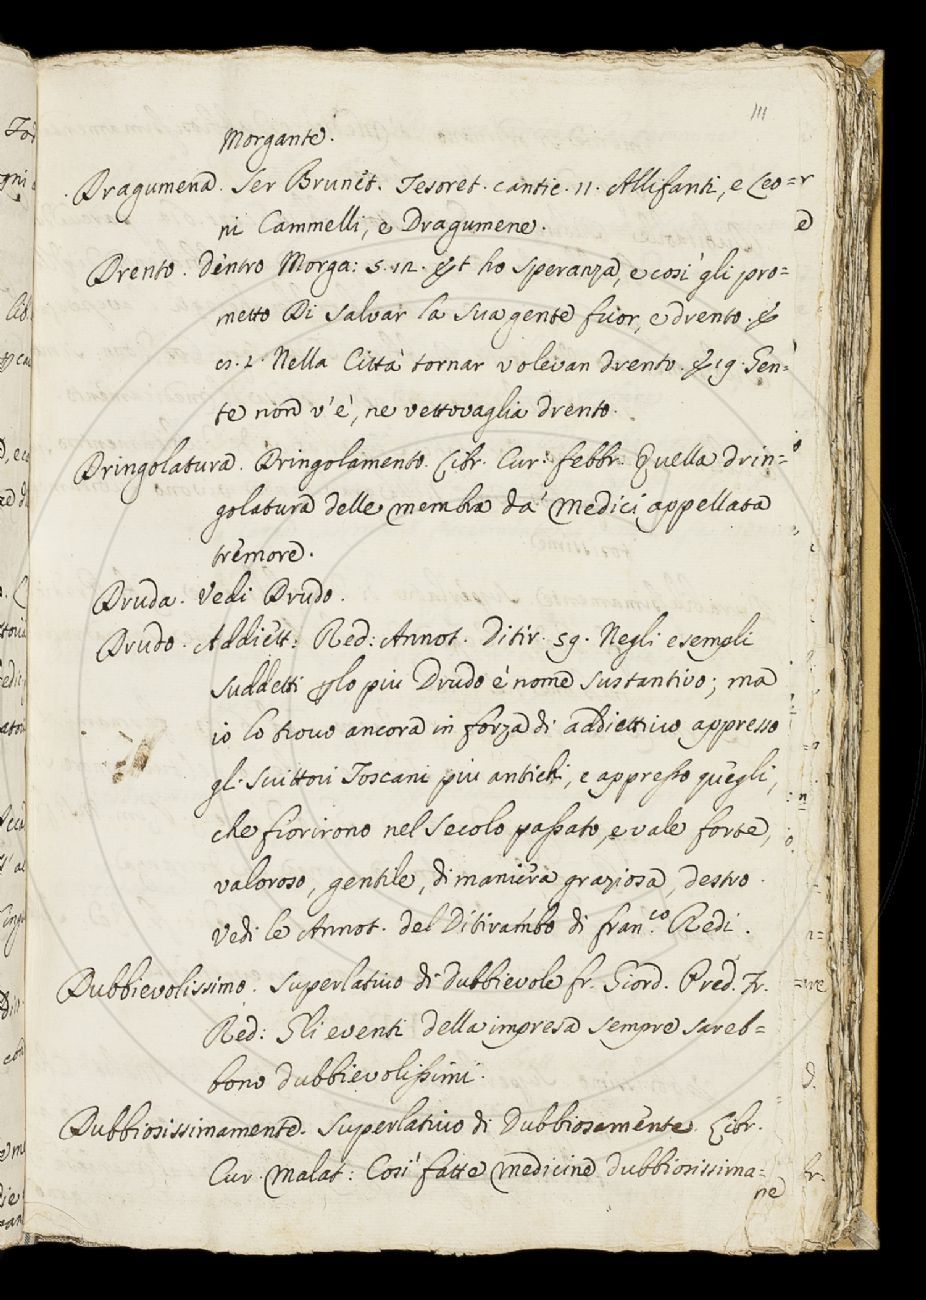 111
Morgante.
Dragumena. Ser Brunet. Tesoret. cantic. 11. Allifanti, e Leo=
ni Cammelli, e Dragumene.
Drento. déntro Morga: 5. 12. Et ho speranza, e così gli pro=
metto Di salvar la sua gente fuor, e drento. &
Nella Città tornar volevan drento. & 19. Gen=
te non v'è, ne vettovaglia drento.
Dringolatura. Dringolamento. Libr. Cur: febbr. Quella drin=
golatura delle membra da' Medici appellata
tremore.
Druda. Vedi Drudo.
Drudo. Addiett: Red: Annot. Ditir. 59. Negli esempli
suddetti plo piu Drudo è nome sustantivo; ma
io lo trovo ancora in forza di addiettivo appresso
gl. Scrittori Toscani piu antichi, e appresso quegli,
che fiorirono nel secolo passato, e vale forte,
valoroso, gentile, di maniera graziosa, destro.
Vedi le Annot. del Ditirambo di Fran.co Redi.
Dubbievolissimo. Superlativo di dubbievole fr. Giord. Pred. Fr.
Red: Gli eventi della impresa sempre sareb=
bono dubbievolissimi.
Dubbiosissimamente. Superlativo di Dubbiosamente. Libr.
Cur. Malat: Cosi fatte medicine dubbiosissima=
ne